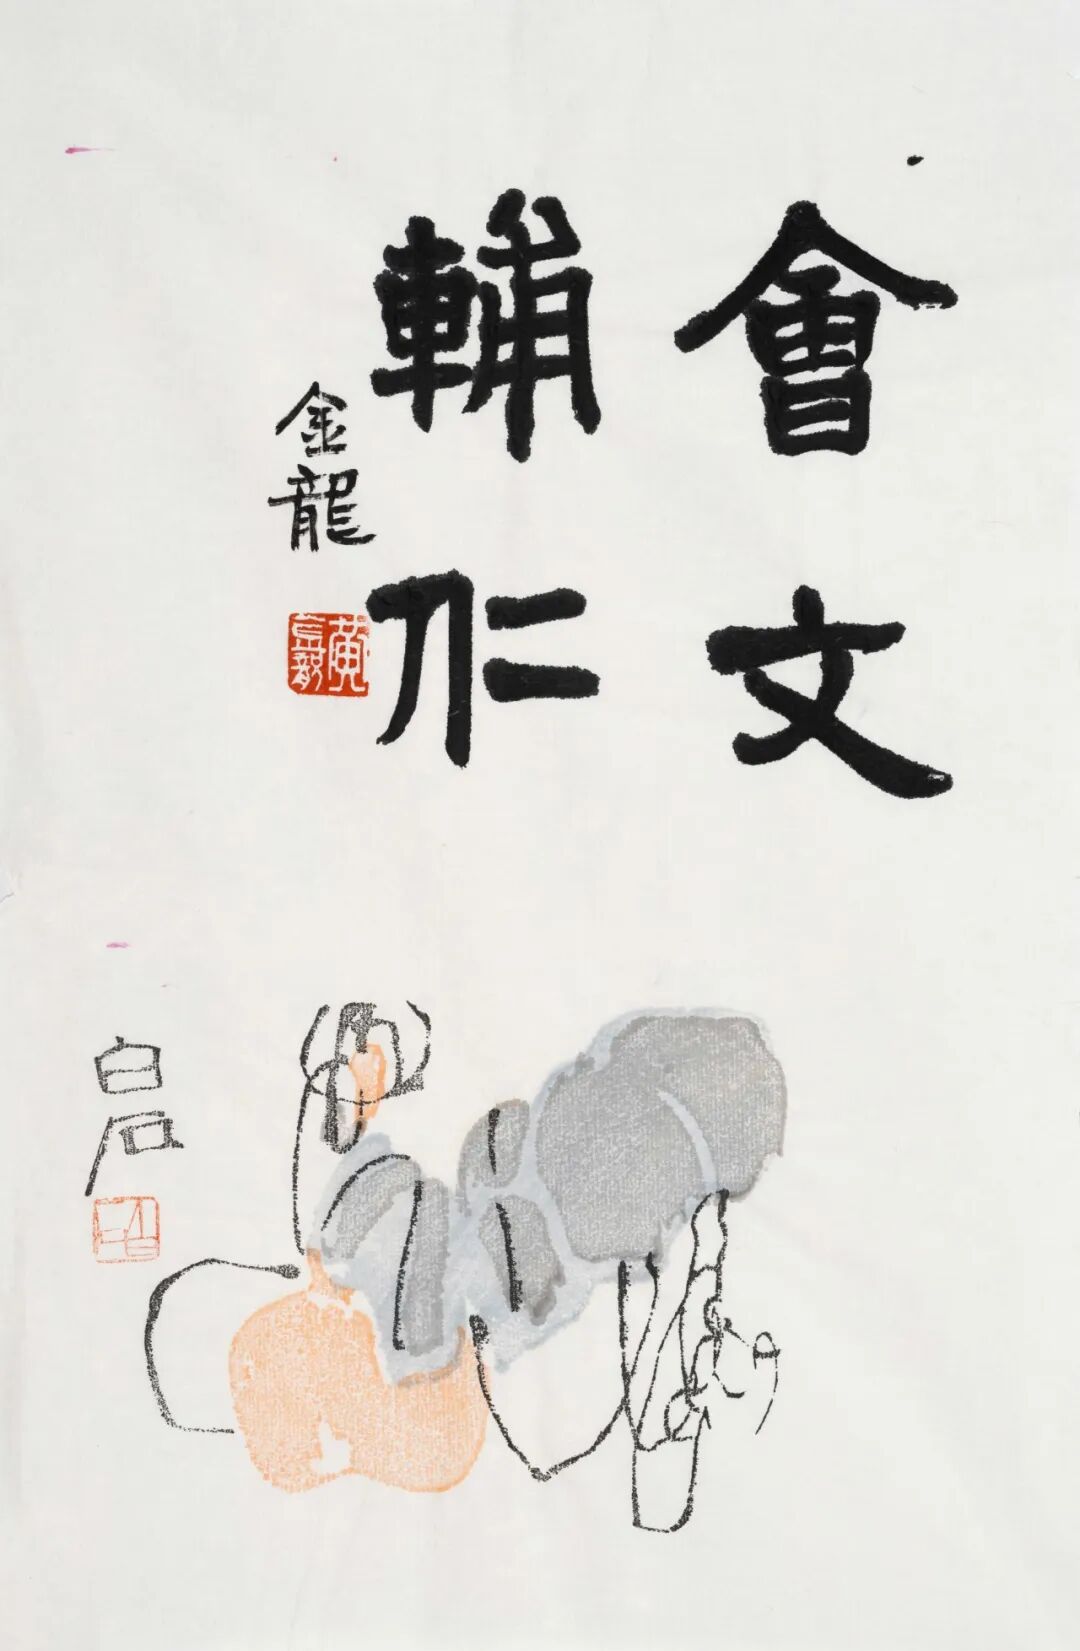 會文
輔仁
金龍
白石